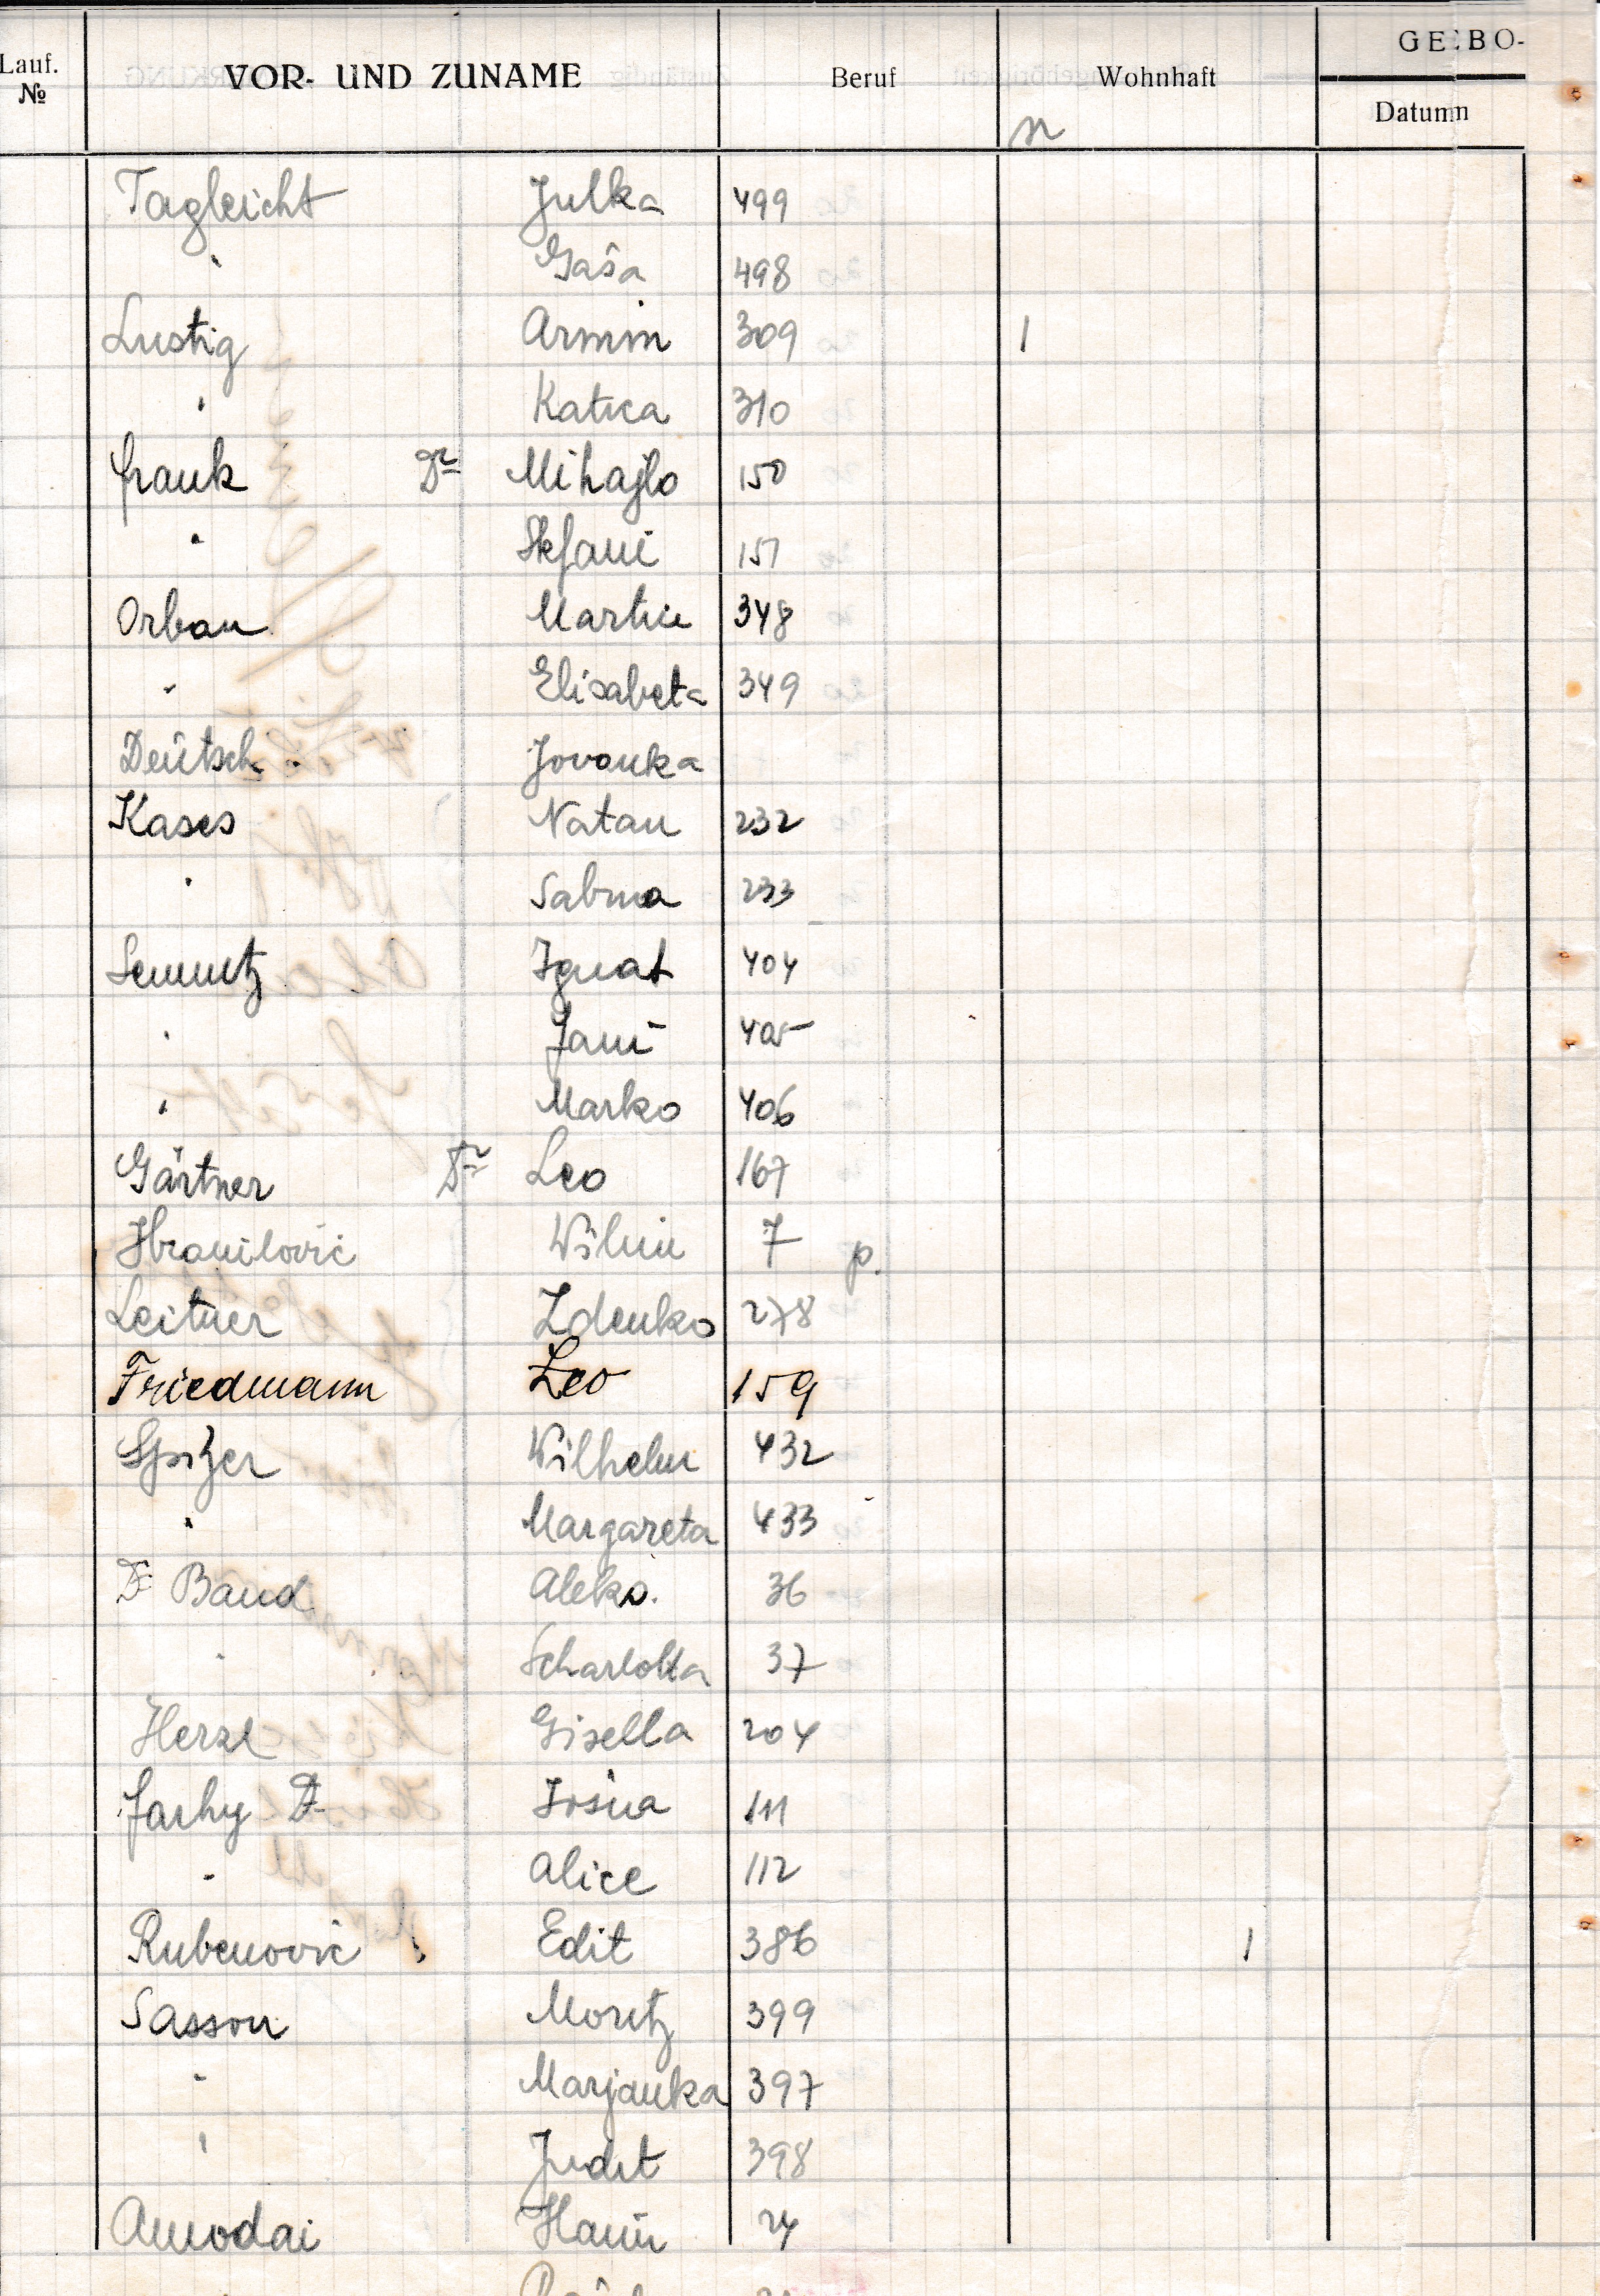 Lauf. № VOR- UND ZUNAME Beruf Wohnhaft GEBO-
Datum
n
Tagleicht Julka 499
" Gaša 498
Lustig Armin 309 1
" Katica 310
Frank Dr Mihajlo 150
" Stefani 151
Orban Martin 348
" Elisabeta 349
Deutsch Jovanka
Kases Natan 232
" Sabina 233
Semnitz Ignat 404
" Fani 405
" Marko 406
Gärtner Dr Leo 167
Hranilović Vilim 7 p.
Leitner Zdenko 278
Friedmann Leo 159
Spitzer Wilhelm 432
" Margareta 433
Dr Band Aleks. 36
" Scharlotta 37
Herzl Gisella 204
Farhy Dr Josua 111
" Alice 112
Rubenović Edit 386 1
Sasson Moritz 399
" Marjanka 397
" Judit 398
Amodai Haim 24